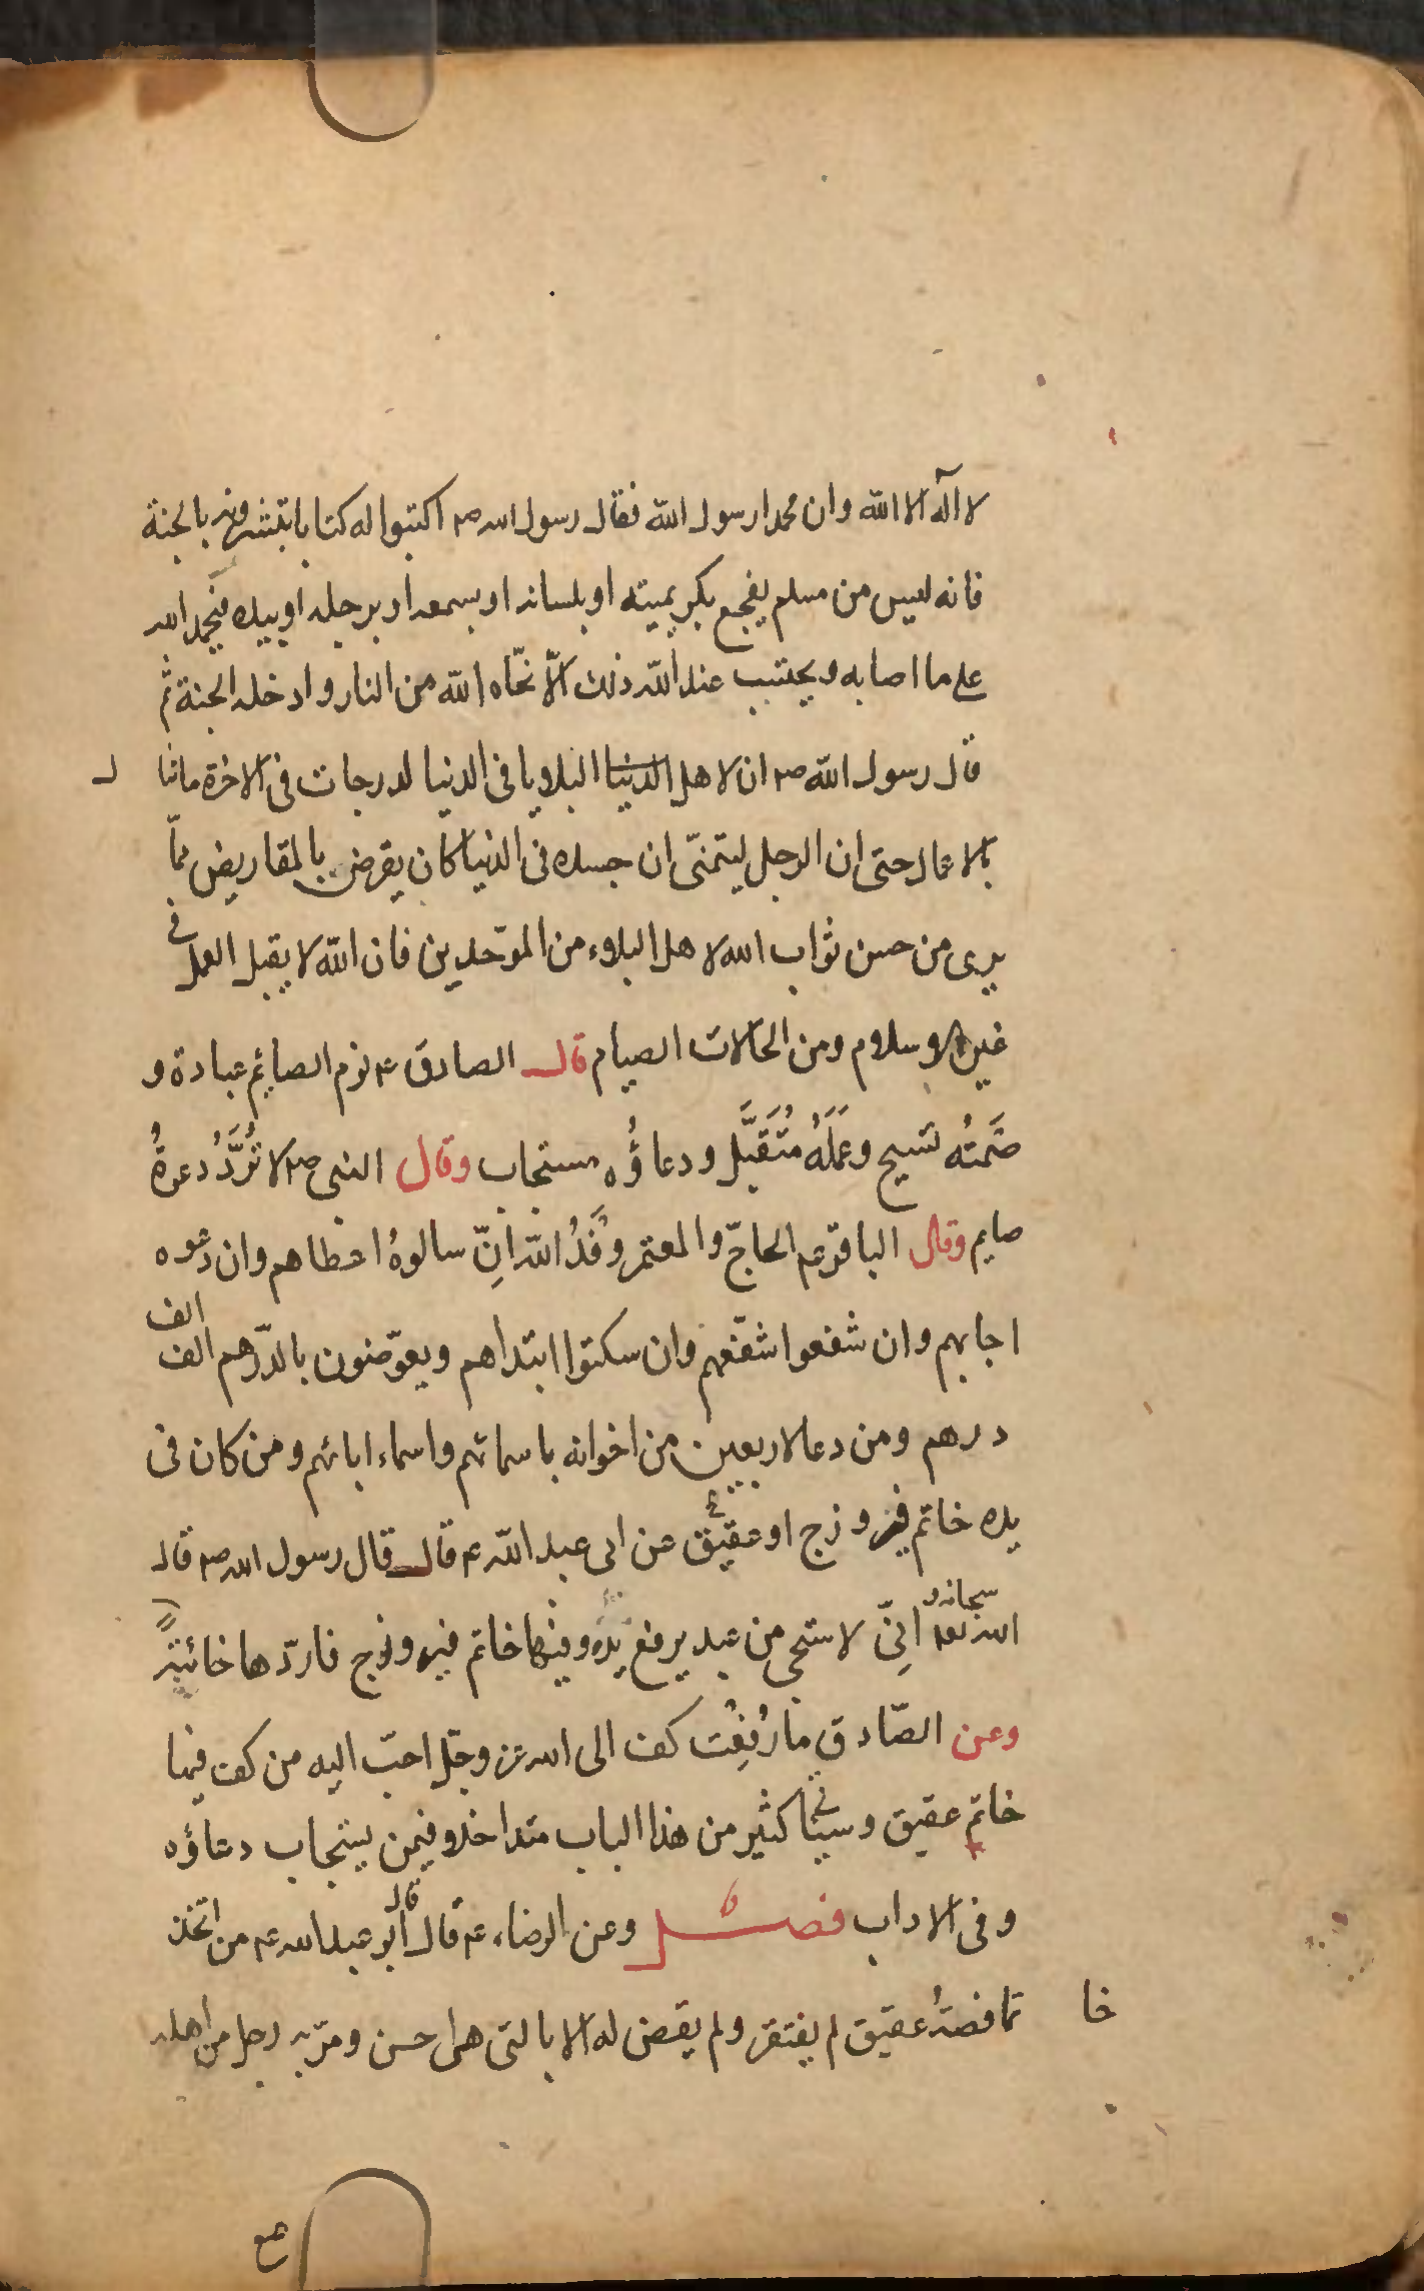 لا اله الا الله وان محمدا رسول الله فقال رسول الله ص اكتبوا له كتابا تبشرونه بالجنة
فانه ليس من مسلم يفجع بكريمته او بلسانه او بسمعه او برجله او بيده فيحمد الله
على ما اصابه ويحتسب عند الله ذلك الّا نجّاه الله من النار وادخله الجنة ثم
قال رسول الله ص ان لاهل الدنيا البلايا فى الدنيا لدرجات فى الاخرة ماتنا ل
بالاعمال حتى ان الرجل ليتمنّى ان جسده فى الدنيا كان يقرض بالمقاريض ممّا
يرى من حسن ثواب الله لاهل البلاء من الموّحدين فان الله لا يقبل العمل فى
غير الاسلام ومن الحالات الصيام قال الصادق ع نوم الصايم عبادة و
صَمتُه تسبيح وعَمَلَهُ مُتَقَبَّل ودعاؤُه مستجاب وقال النبى ص لا تُرَدُّ دعوةُ
صايم وقال الباقر ع الحاجّ والمعتمر وَفَدُ الله انِّ سالوهُ اعطاهم وان دعوه
اجابهم وان شفعوا شفّعهم وان سكتوا ابتداهم ويعوّضنون بالدّرهم الف الف
درهم ومن دعا لاربعين من اخوانه باسمائهم واسماء ابائهم ومن كان فى
يده خاتم فيروزج او عقيق عن ابى عبد الله ع قال قال رسول الله ص قال
الله سبحانه وتعه انِّى لاستحى مِن عبد يرفع يَدَه وفيها خاتم فيروزج فاردّها خائبةً
وعن الصّادق ما رُفِعْت كف الى الله عز وجلّ احبّ اليه من كف فيها
خاتم عقيق وسياتى كثير من هذا الباب متداخلا وفيمن يستجاب دعاؤه
وفى الاداب فصل وعن الرضاء ع قال قال ابو عبد الله ع من اتخذ
خا تما فصهُ عقيق لم يفتقر ولم يقض له الا بالتى هى احسن ومرّ به رجل من اهله